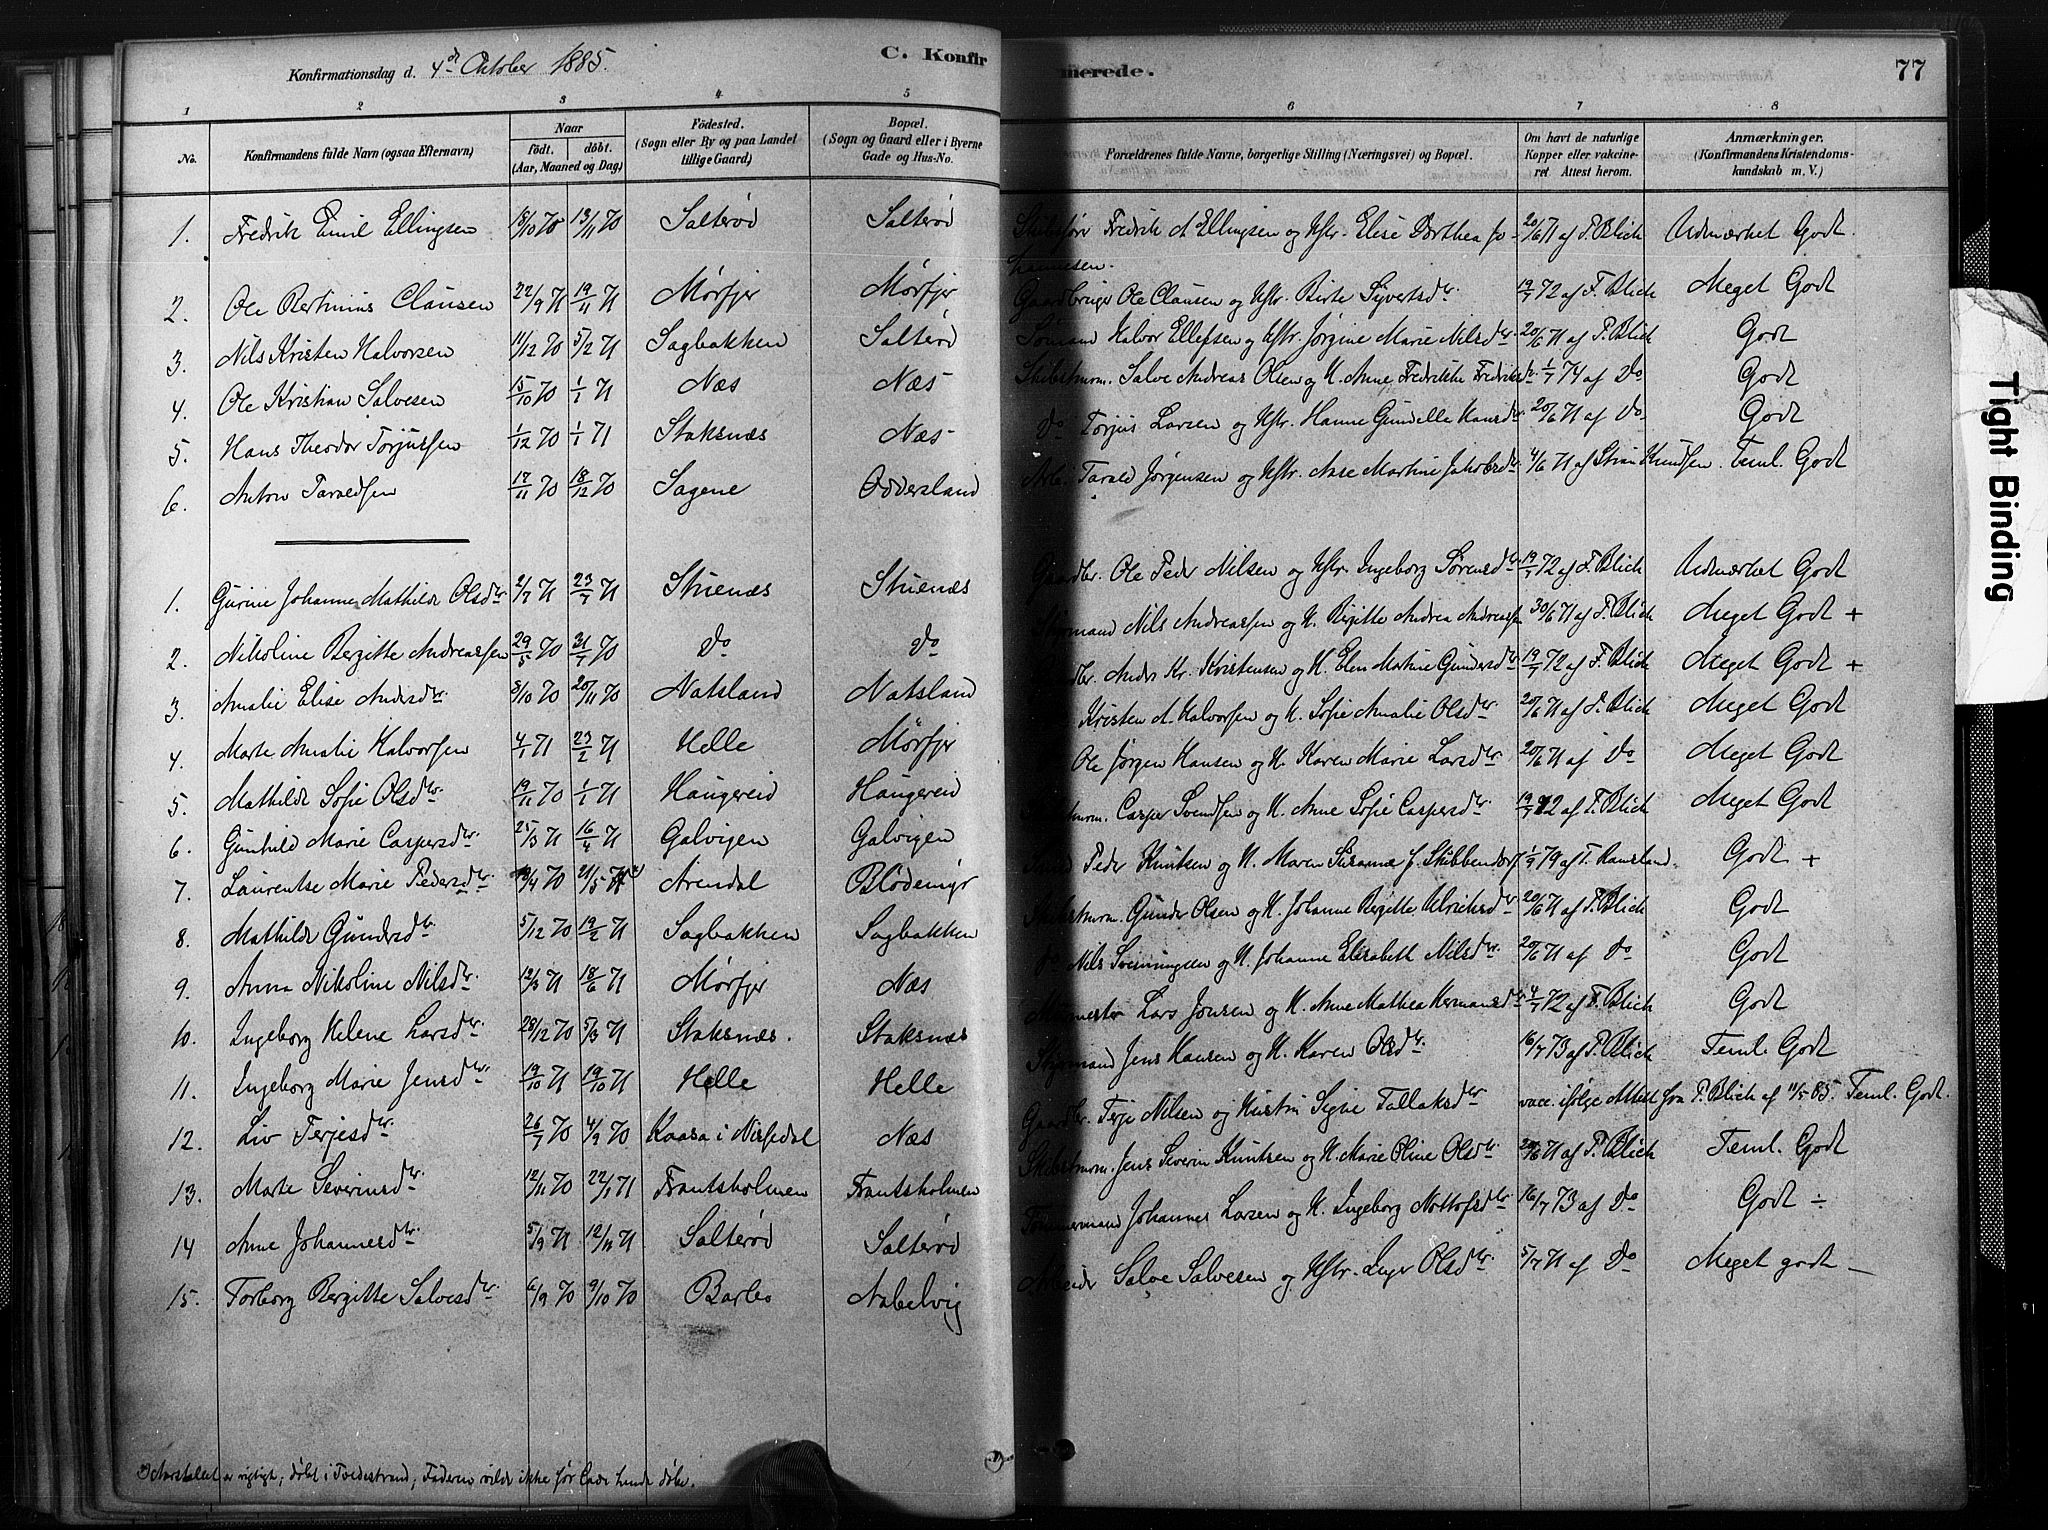 Konfirmationsdag d. 4de Oktober 1885. C. Konfirmerede. 77
1 2 3 4 5 6 7 8
No. Konfirmandens fulde Navn (ogsaa Efternavn) Naar födt. döbt. (Aar, Maaned og Dag) Födested. (Sogn eller By og paa Landet tillige Gaard) Bopæl. (Sogn og Gaard eller i Byerne Gade og Hus-No. Forældrenes fulde Navne, borgerlige Stilling (Næringsvei) og Bopæl. Om havt de naturlige Kopper eller vakcineret Attest herom. Anmærkninger. (Konfirmandens Kristendomskundskab m. V.)
1. Fredrik Emil Ellingsen 18/10 70 13/11 70 Salterød Salterød Skibsfører Fredrik A Ellingsen og Hstr. Elise Dorthea Johannesen. 20/6 71 af F. Blich Udmærket Godt.
2. Ole Bertinius Clausen 22/9 71 19/11 71 Mørfjer Mørfjer Gaardbruger Ole Clausen og Hstr. Birte Syvertsdtr. 19/7 72 af F. Blich Meget Godt
3. Nils Kristen Halvorsen 11/12 70 5/2 71 Sagbakken Salterød Sömand Halvor Ellefsen og Hstr. Jørgine Marie Nilsdtr. 20/6 71 af F. Blich Godt
4. Ole Kristian Salvesen 15/10 70 1/1 71 Næs Næs Skibstmrm. Salve Andreas Olsen og H. Anne Fredrikke Fredriksdr. 1/7 74 af Do Godt
5. Hans Theodor Torjussen 1/12 70 1/1 71 Staksnæs Næs Do Torjus Larsen og Hstr. Hanne Gunelle Hansdtr. 20/6 71 af Do Godt
6. Anton Taraldsen 17/11 70 18/12 70 Sagene Oddersland Arb. Tarald Jørgensen og Hstr. Anne Martine Jakobsdtr. 4/6 71 af Knudsen. Teml. Godt
1. Gurine Johanne Mathilde Olsdtr 2/7 71 23/7 71 Stuenæs Stuenæs Gaardbr. Ole Peder Nilsen og Hstr. Ingeborg Sørensdtr. 19/7 72 af F. Blich Udmærket Godt
2. Nikoline Bergitte Andreassen 29/5 70 31/7 70 Do Do Styrmand Nils Andreassen og H. Bergitte Andrea Andreassen 30/6 71 af F. Blich Meget Godt +
3. Amalie Elise Andersdtr. 8/10 70 20/11 70 Natsland Natsland Anders Kr. Kristensen og H. Elen Matine Gundersdtr 19/7 72 af F. Blich Meget Godt +
4. Marte Amalie Halvorsen 4/1 71 23/2 71 Helle Mørfjer Kristen A. Halvorsen og H. Sofie Amalie Olsdtr 20/6 71 af F. Blich Meget Godt
5. Mathilde Sofie Olsdtr. 19/11 70 1/1 71 Haugereid Haugereid Ole Jørgen Hansen og H. Karen Marie Larsdtr 20/6 71 af Do Meget Godt
6. Gunhild Marie Caspersdtr. 25/3 71 16/4 71 Galvigen Galvigen Casper Svendsen og H. Anne Sofie Caspersdtr 19/7 72 af F. Blich Meget Godt
7. Laurentse Marie Pedersdtr 18/4 70 21/5 Arendal Blødemyr Peder Knutsen og H. Maren Susanne f. Stibbendorf 1/9 79 af T. Ramsland. Godt +
8. Mathilde Gundersdtr. 5/12 70 19/2 71 Sagbakken Sagbakken Skibstmrm. Gunder Olsen og H. Johanne Bergitte Ulriksdtr 20/6 71 af F. Blich Godt
9. Anna Nikoline Nilsdtr. 12/3 71 18/6 71 Mørfjer Næs Do Nils Svenningsen og H. Johanne Elisabeth Nilsdtr. 20/6 71 af Do Godt
10. Ingeborg Helene Larsdtr 28/12 70 5/3 71 Staksnæs. Staksnæs Murmester Lars Jonsen og H. Anne Mathea Hermansdtr 4/7 72 af F. Blich Godt
11. Ingeborg Marie Jensdtr. 19/10 71 19/10 71 Helle Helle Styrmand Jens Hansen og H. Karen Olsdtr. 16/7 73 af F. Blich Teml. Godt
12. Liv Terjesdtr. 26/7 70 4/9 70 Kaasa i Nissedal Næs Gaardbr. Terje Nilsen og Hustru Signe Tallaksdtr vacc. ifølge Attest fra P. Blich af 11/5 85. Teml. Godt.
13. Marte Severinsdtr. 12/11 70 22/1 71 Frantsholmen Frantsholmen Skibstmrm. Jens Severin Knutsen og H. Marie Oline Olsdtr 20/6 71 af F. Blich Teml. Godt
14 Anne Johannesdtr. 5/9 71 12/11 71 Salterød Salterød Tømmermand Johannes Larsen og H. Ingeborg Nottofsdtr 16/7 73 af Do Godt ÷
15. Torborg Bergitte Salvesdtr. 6/9 70 9/10 70 Barbo Nabelvig Arbeider Salve Salvesen og Hstr. Inger Olsdtr. 5/7 71 af Do Meget godt —
Aarstallet er rigtigt; døbt i Tvedestrand; Faderen vilde ikke før lade hende døbe.
Tight Binding